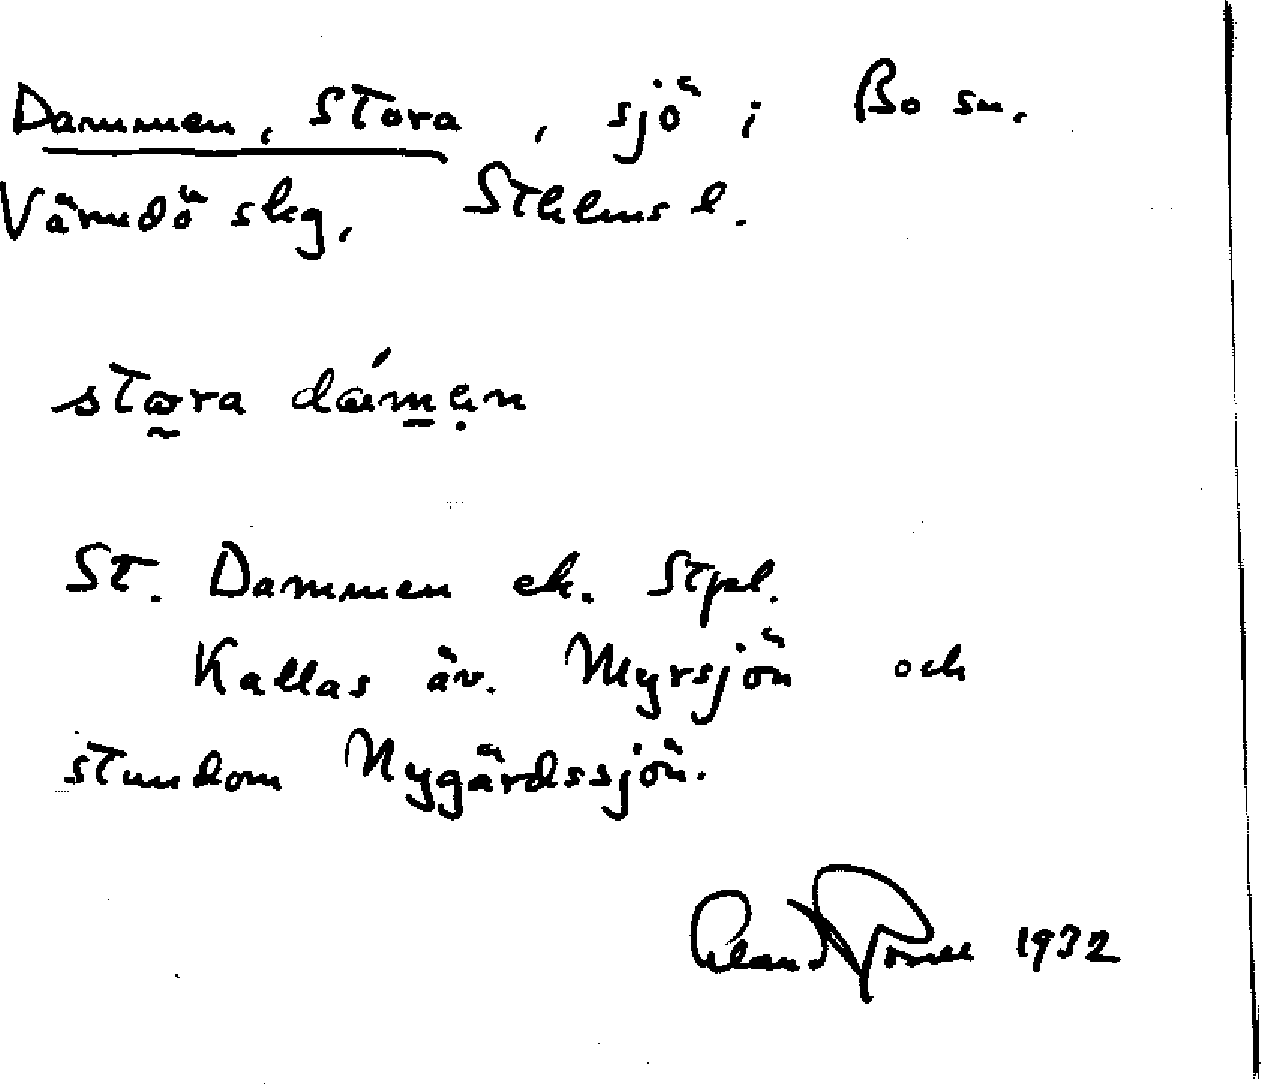 Dammen, Stora, sjö i Bo sn.
Värmdö skg, Sthlms l.
stora dámen
St. Dammen ek. Stpl.
Kallas äv. Myrsjön och
stundom Nygårdssjön.
1932